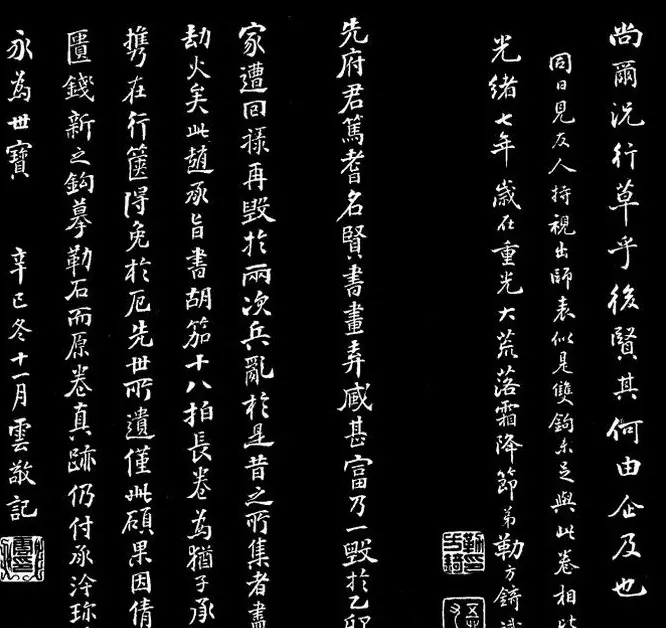 尚爾況行草乎後賢其何由企及也
同日見友人持視出師表似是雙鉤未足與此卷相
光緒七年歲在重光大荒落霜降節弟勒方錡
先府君篤耆名賢書畫弆臧甚富乃一毀於乙卯
家遭回祿再毀於兩次兵亂於是昔之所集者盡
劫火矣此趙承旨書胡笳十八拍長卷為猶子承
攜在行篋得免於厄先世所遺僅此碩果因倩
匱錢新之鉤摹勒石而原卷真跡仍付承泠珍
永為世寶 辛巳冬十一月雲敬記